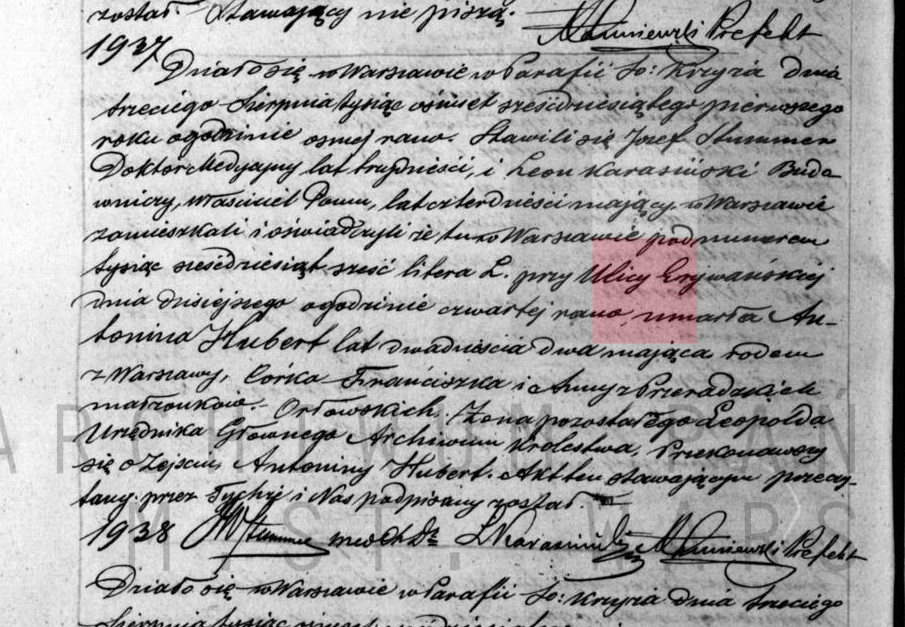 został. Stawający nie piszą.
1937
Działo się w Warszawie w Parafii Śo: Krzyża dnia
trzeciego Sierpnia tysiąc ośmset sześćdziesiątego pierwszego
roku o godzinie osmej rano. Stawili się Jozef Stummer
Doktor Medycyny lat trzydzieści, i Leon Karasiński Budo
wniczy, właściciel Domu, lat czterdzieści mający, w Warszawie
zamieszkali i oświadczyli że tu w Warszawie pod numerem
tysiąc sześćdziesiąt sześć litera L. przy Ulicy Erywańskiej
dnia dzisiejszego o godzinie czwartej rano, umarła An-
tonina Hubert lat dwadzieścia dwa mająca rodem
z Warszawy, Córka Franciszka i Anny z
małżonków Orłowskich. Żona pozostałego Leopolda
Urzędnika Głownego Archiwum Krolestwa, Przekonawszy
się o Zejściu Antoniny Hubert. Akt ten stawającym przeczy-
tany przez Tychże i Nas podpisany został.
1938 Stummer L Karasiński Prefekt
Działo się w Warszawie w Parafii Śo: Krzyża dnia trzeciego
Sierpnia tysiąc
ARCHIWUM PAŃ
M.ST. WARS